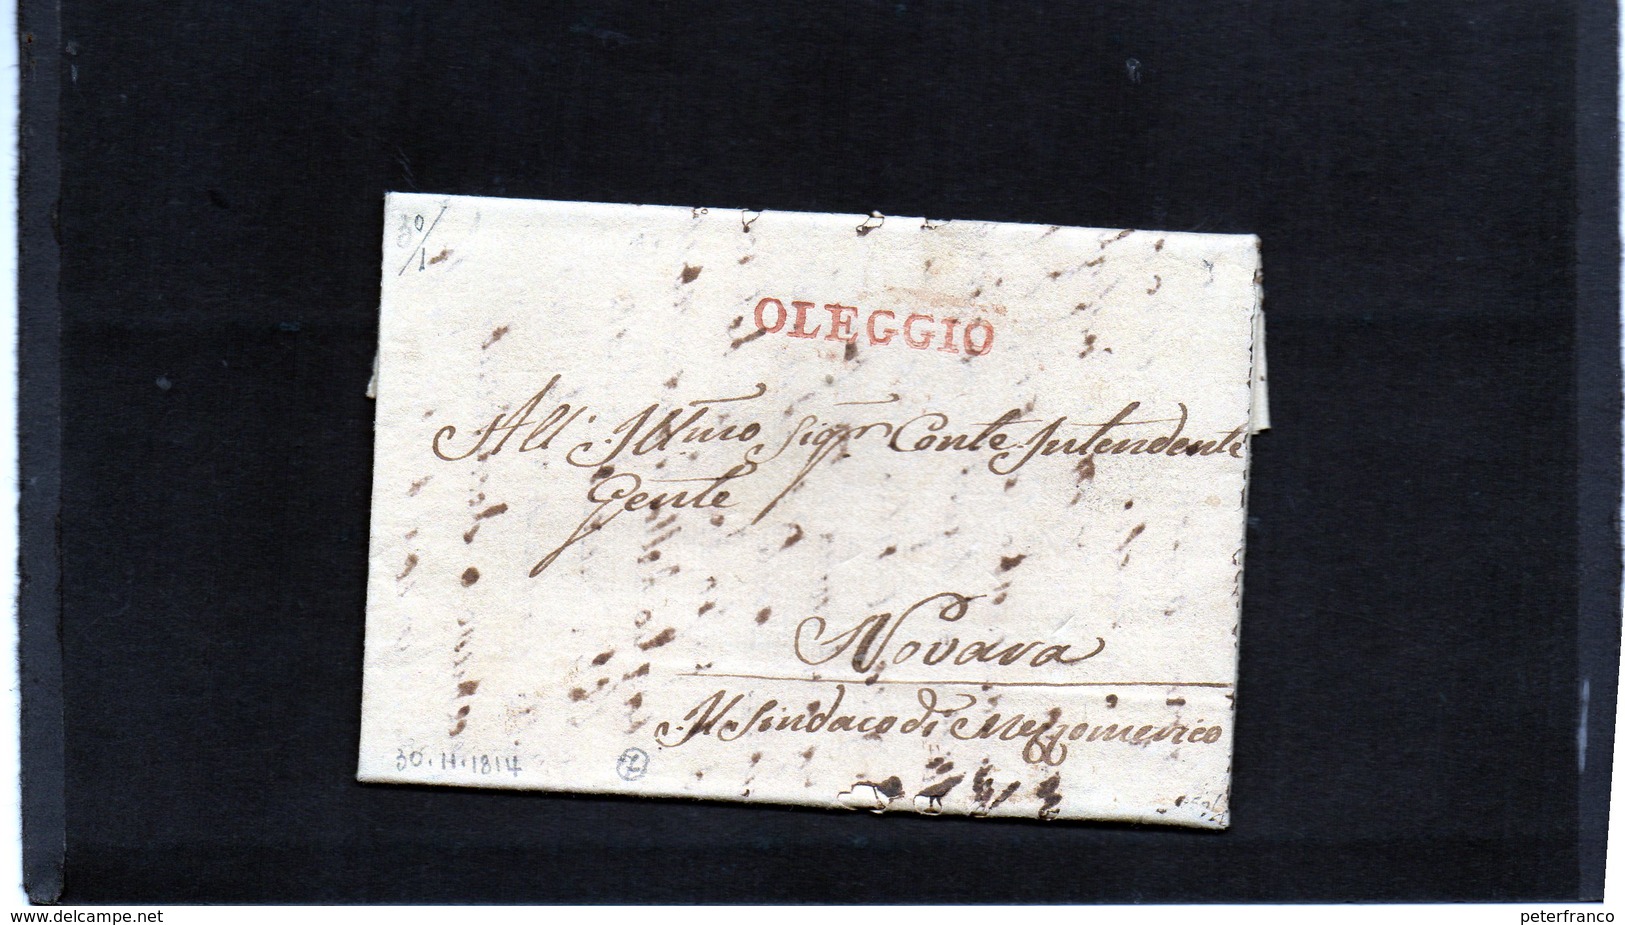 30/1
OLEGGIO
All' Illmo Sigr Conte Intendente
Gente
Novara
Il Sindaco di Mezzomerico
30.11.1814
www.delcampe.net
peterfranco